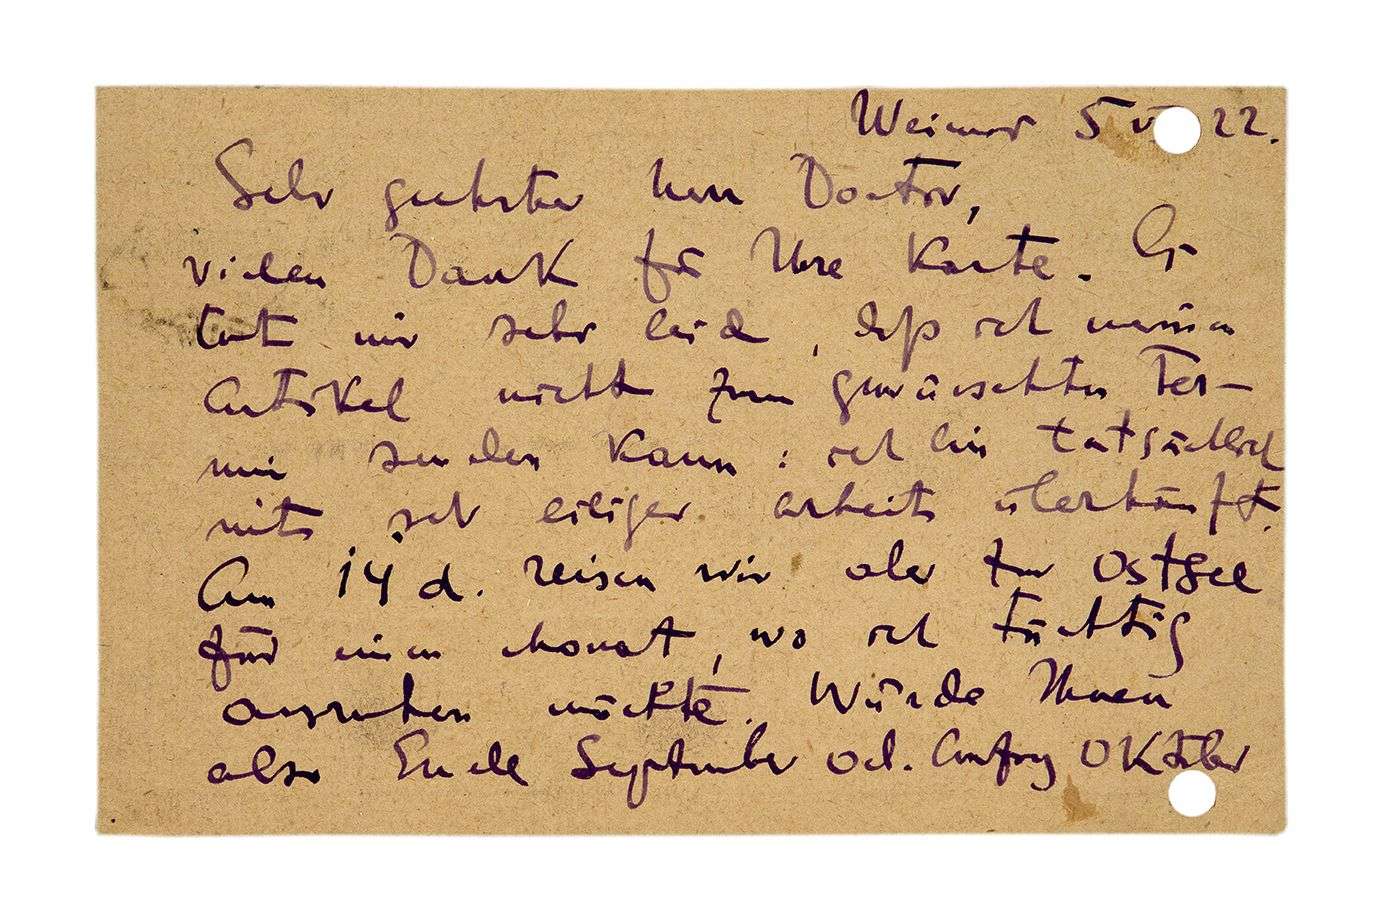 Weimar 5 V 22.
Sehr geehrter Herr Doctor,
vielen Dank für Ihre Karte. Es
tut mir sehr leid, daß ich meinen
Artikel nicht zum gewünschten Ter-
min senden kann: ich bin tatsächlich
mit sehr eiliger Arbeit überhäuft.
Am 14 d. reisen wir aber zur Ostsee
für einen Monat, wo ich tüchtig
ausruhen möchte. Würde Ihnen
also Ende September od. Anfang Oktober